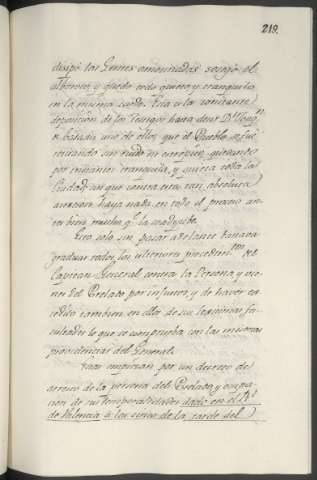 219.
disipó las Gentes amontonadas, sosegó el
alboroto, y quedó todo quieto y tranquilo
en la misma tarde. Esta es la constante
deposicion de los Testigos hasta decir Dⁿ
uno de ellos que el Pueblo se fué
retirando sin ruido ni quedando
por instantes tranquila, y quieta toda la
Ciudad sin que contra esta tan absoluta
haya nada en todo el proceso an-
tes bien mucho qᵉ la
Esto solo sin pasar adelante bastaria
todos los ulteriores procedimᵗᵒˢ del
Capitan General contra la Persona y vie-
nes del Prelado por injustos, y de haver ex-
cedido tambien en ellos de sus facul-
tades lo que se comprueba con las mismas
providencias del General.
Estas empiezan por un decreto de
arresto de la persona del Prelado, y ocupa-
cion de sus temporalidades dado en el Rˡ
de Valencia a las cinco de la tarde del